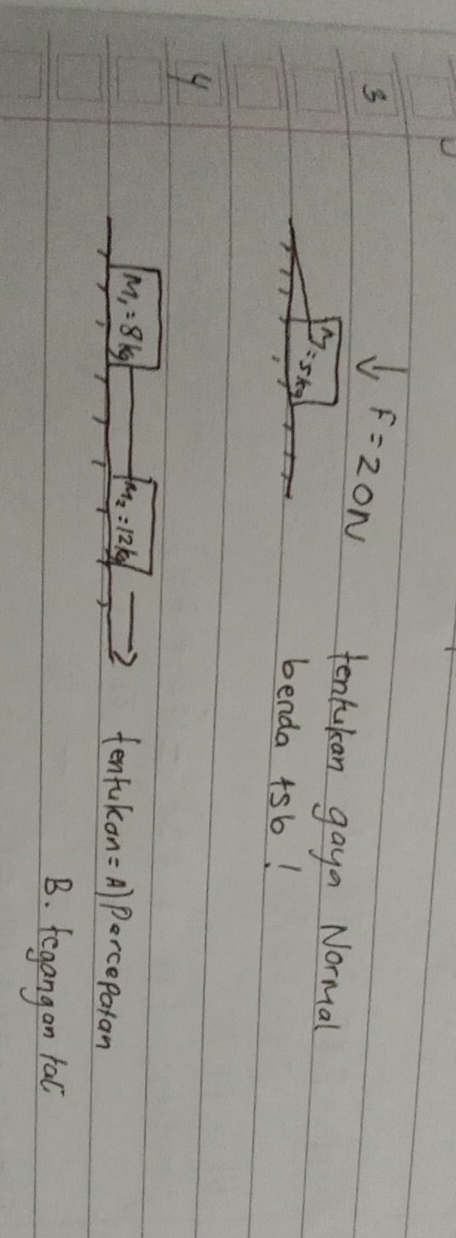 3
↓ F = 20N
tentukan gaya Normal
M = 5 kg
benda tsb !
4
M₁ = 8 kg
M₂ = 12 kg
tentukan = A) Percepatan
B. tegangan tali